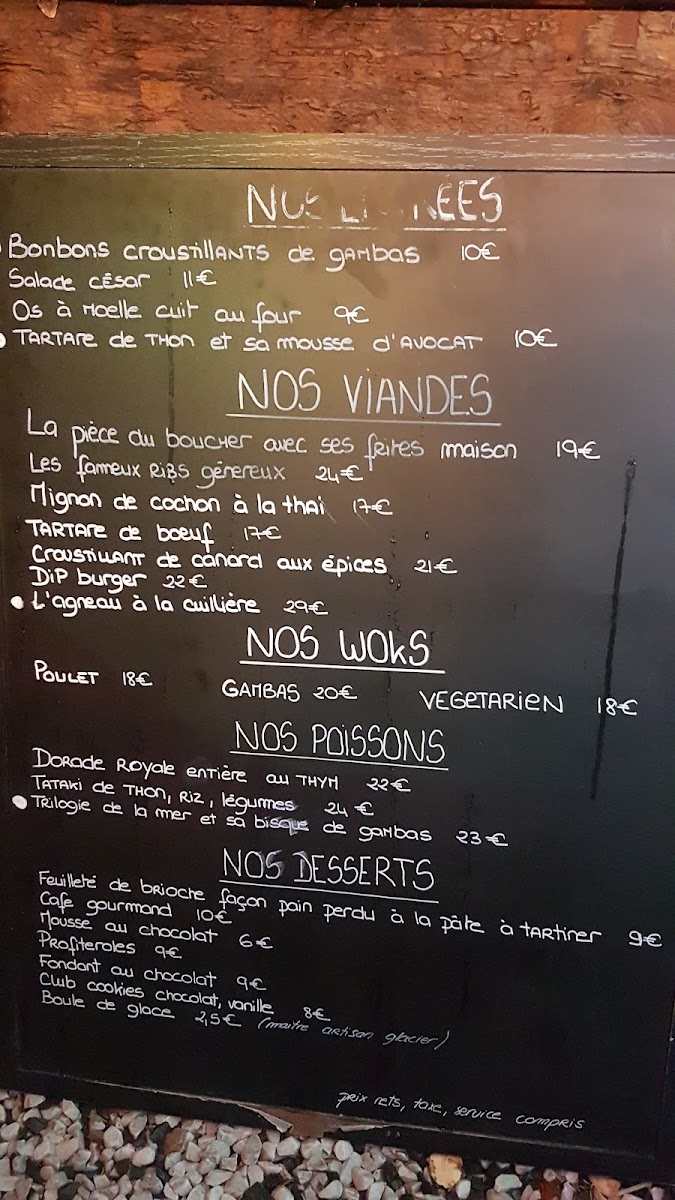 NOS ENTRÉES
Bonbons croustillants de gambas 10€
Salade césar 11€
Os à moelle cuit au four 9€
Tartare de thon et sa mousse d'avocat 10€
NOS VIANDES
La pièce du boucher avec ses frites maison 19€
Les fameux ribs génereux 24€
Mignon de cochon à la thai 17€
Tartare de boeuf 17€
Croustillant de canard aux épices 21€
Dip burger 22€
L'agneau à la cuillière 29€
NOS WOKS
Poulet 18€ Gambas 20€ Vegetarien 18€
NOS POISSONS
Dorade Royale entière au thym 22€
Tataki de thon, riz, légumes 24€
Trilogie de la mer et sa bisque de gambas 23€
NOS DESSERTS
Feuilleté de brioche façon pain perdu à la pâte à tartiner 9€
Cafe gourmand 10€
Mousse au chocolat 6€
Profiteroles 9€
Fondant au chocolat 9€
Club cookies chocolat, vanille 8€
Boule de glace 2,5€ (maitre artisan glacier)
prix nets, taxe, service compris